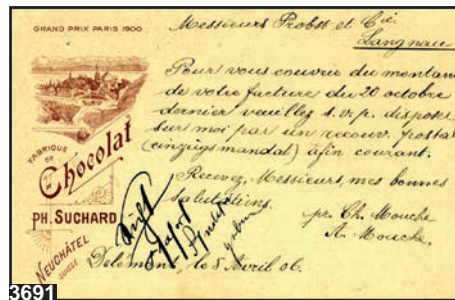 GRAND PRIX PARIS 1900
FABRIQUE
DE
Chocolat
PH. SUCHARD
NEUCHÂTEL
SUISSE
Messieurs Probst et Cie.
Langnau
Pour vous couvrir du montant
de votre facture du 20 octobre
dernier veuillez s.v.p. disposer
sur moi par un recouv. postal
(einzugsmandat) afin courant.
Recevez, Messieurs, mes bonnes
salutations.
pr. Ch. Mouche
A. Mouche.
Delémont, le 5 Avril 06.
3691